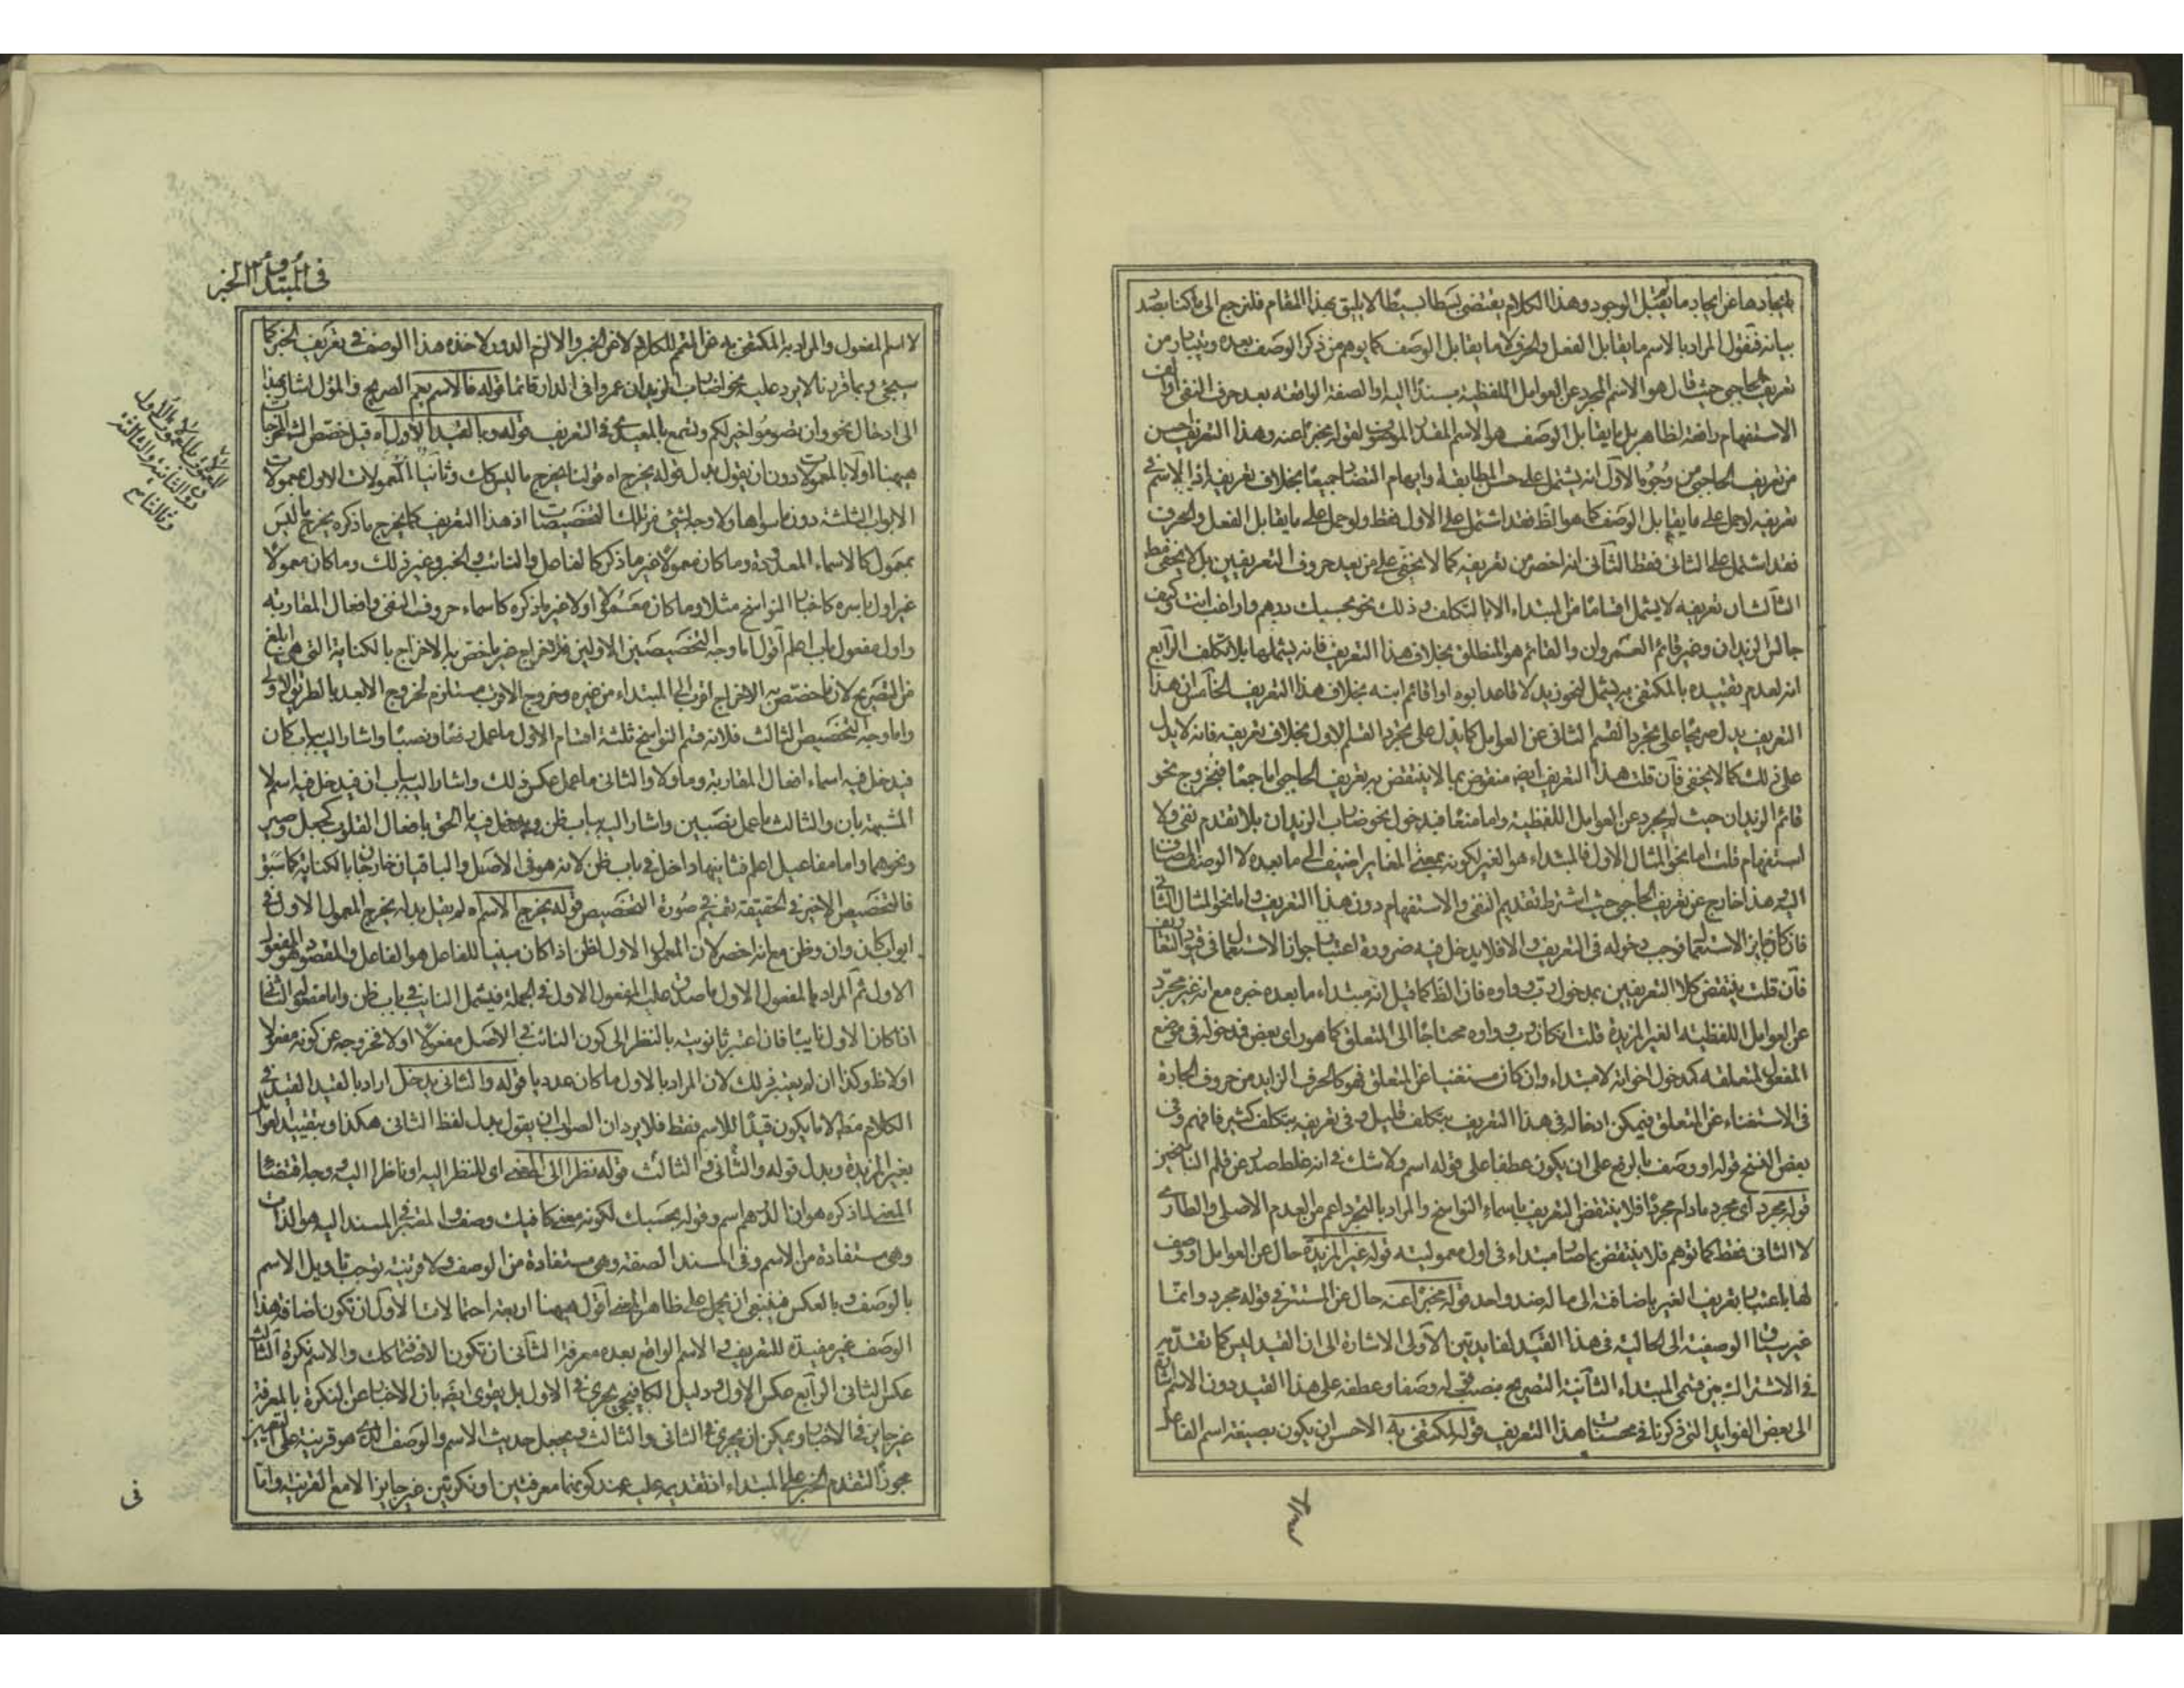 بايجادها عن ايجاد ما يقبل الوجود وهذا الكلام يقتضى بسطا بسيطا لا يليق بهذا المقام فلنرجع الى ما كنا بصدد
بيانه فنقول المراد بالاسم ما يقابل الفعل والحرف لا ما يقابل الوصف كما يوهم من ذكر الوصف بعده ويتبادر من
تعريف الحاجبى حيث قال هو الاسم المجرد عن العوامل اللفظية مسندا اليه او الصفة الواقعة بعد حرف النفى والف
الاستفهام رافعة لظاهر بل ما يقابل الوصف هو الاسم المقدر الموصوف لقوله مخبرا عنه وهذا التعريف احسن
من تعريف الحاجبى من وجوه الاول انه يشتمل على حسن المطابقة وايهام التضاد جميعا بخلاف تعريفه اذ الاسم فى
تعريفه لو حمل على ما يقابل الوصف كما هو الظ فقد اشتمل على الاول فقط ولو حمل على ما يقابل الفعل والحرف
فقد اشتمل على الثانى فقط الثانى انه اخصر من تعريفه كما لا يخفى على من يعد حروف التعريفين بل لا يخفى
الثالث ان تعريفه لا يشمل اقساما من المبتداء الا بالتكلف وذلك نحو بحسبك درهم واراغب انت وكيف
جالس الزيدان وغير قائم العمروان والقائم هو المنطلق بخلاف هذا التعريف فانه يشملها بلا تكلف الرابع
انه لعدم تقييده بالمكتفى به يشمل لنحو زيد لا قاعد ابوه او اقائم ابنه بخلاف هذا التعريف الخامس ان هذا
التعريف يدل صريحا على تجرد القسم الثانى عن العوامل كما يدل على تجرد القسم الاول بخلاف تعريفه فانه لا يدل
على ذلك كما لا يخفى فان قلت هذا التعريف ايضا منقوض بما لا ينتقض به تعريف الحاجبى اما جمعا فبخروج نحو
قائم الزيدان حيث لم يجرد عن العوامل اللفظية واما منعا فبدخول نحو ضارب الزيدان بلا تقدم نفى ولا
استفهام قلت اما نحو المثال الاول فالمبتداء هو الغير لكونه بمعنى المغاير اضيف الى ما بعده لا الوصف المضاف
اليه وهذا خارج عن تعريف الحاجبى حيث اشترط تقديم النفى والاستفهام دون هذا التعريف واما نحو المثال الثانى
فان كان جايز الاستعمال فوجب دخوله فى التعريف والا فلا يدخل فيه ضرورة اعتبار جواز الاستعمال فى قيود التعاريف
فان قلت ينتقض كلا التعريفين بمدخول رب وواوه فان الظ كما قيل انه مبتداء ما بعده خبره مع انه غير مجرد
عن العوامل اللفظية الغير المزيدة قلت ان كان رب وواوه محتاجا الى المتعلق كما هو راى بعض فمدخوله فى موضع
المفعول لمتعلقه كمدخول اخواته لا مبتداء وان كان مستغنيا عن المتعلق فهو كالحرف الزايد من حروف الجارة
فى الاستغناء عن المتعلق فيمكن ادخاله فى هذا التعريف بتكلف قليل وفى تعريفه بتكلف كثير فافهم وفى
بعض النسخ قوله او وصف بالرفع على ان يكون عطفا على قوله اسم ولا شك فى انه غلط صدر عن قلم الناسخين
قوله مجرد اى مجرد ما دام مجردا فلا ينتقض التعريف باسماء النواسخ والمراد بالتجرد اعم من العدم الاصلى والطارى
لا الثانى فقط كما توهم فلا ينتقض بما صار مبتداء فى اول معموليته قوله غير المزيدة حال عن العوامل او وصف
لها باعتبار تعريف الغير باضافته الى ما له ضد واحد قوله مخبرا عنه حال عن المستتر فى قوله مجرد وانما
غير سياق الوصفية الى الحالية فى هذا القيد لفايدتين الاولى الاشارة الى ان القيد ليس كما تقدمه
فى الاشتراك بين قسمى المبتداء الثانية التصريح بنصب قوله وصفا وعطفه على هذا القيد دون الاسم اشارة
الى بعض الفوايد التى ذكرنا فى محسنات هذا التعريف قوله المكتفى به الاحسن ان يكون بصيغة اسم الفاعل
فى المبتدأ والخبر
لا اسم المفعول والمراد به المكتفى به عن المتمم للكلام لا عن الخبر والا لزم الدور لاخذه هذا الوصف فى تعريف الخبر كما
سيجئ وبما قررنا لا يرد عليه نحو اضارب الزيدان عمروا فى الدار قائما قوله فالاسم يعم الصريح والمؤل اشار بهذا
الى ادخال نحو وان تصوموا خير لكم وتسمع بالمعيدى فى التعريف قوله وبالقيد الاول اه قيل خصص
ههنا اولا بالمعمولات دون ان يقول بدل قوله يخرج اه قولنا يخرج ما ليس كك وثانيا المعمولات الاول بمعمولات
الابواب الثلثة دون ما سواها ولا وجه لشئ من تلك التخصيصات اذ هذا التعريف كما يخرج ما ذكره يخرج ما ليس
بمعمول كالاسماء المعدودة وما كان معمولا غير ما ذكر كالفاعل والنائب والخبر وغير ذلك وما كان معمولا
غير اول باسره كاخبار النواسخ مثلا وما كان معمولا اولا غير ما ذكره كاسماء حروف النفى وافعال المقاربة
واول مفعولى باب اعلم اقول اما وجه التخصيصين الاولين فلاخراج غير ما خص به الاخراج بالكناية التى هى ابلغ
من التصريح لان ما خصص به الاخراج اقرب الى المبتداء من غيره وخروج الاقرب مستلزم لخروج الابعد بالطريق الاولى
واما وجه التخصيص الثالث فلانه قسم النواسخ ثلثة اقسام الاول ما عمل رفعا ونصبا واشار اليه بباب كان
فيدخل فيه اسماء افعال المقاربة وما ولا والثانى ما عمل عكس ذلك واشار اليه بباب ان فيدخل فيه اسم لا
المشبهة بان والثالث ما عمل نصبين واشار اليه بباب ظن ويدخل فيه ما الحق بافعال القلوب كجعل وصير
ونحوهما واما مفاعيل اعلم فثانيها داخل فى باب ظن لانه هو فى الاصل والباقيان خارجان بالكناية كما سبق
فالتخصيص الاخير فى الحقيقة تعميم فى صورة التخصيص قوله يخرج الاسم اه لم يقل بدله يخرج المعمول الاول فى
ابواب كان وان وظن مع انه اخصر لان المعمول الاول لظن اذا كان مبنيا للفاعل هو الفاعل والمقصود هو المفعول
الاول ثم المراد بالمفعول الاول ما صدق عليه المفعول الاول فى الجملة فيشمل النايب فى باب ظن واما مفعوله الثانى
اذا كان الاول نايبا فان اعتبر ثانويته بالنظر الى كون النائب فى الاصل مفعولا اولا فخروجه عن كونه مفعولا
اولا ظ وكذا ان لم يعتبر ذلك لان المراد بالاول ما كان عدديا قوله والثانى يدخل اراد بالقيد القيد فى
الكلام مط لا ما يكون قيدا للاسم فقط فلا يرد ان الصواب ان يقول بدل لفظ الثانى هكذا وبتقييد العوامل
بغير المزيدة وبدل قوله والثانى والثالث قوله نظرا الى المعنى اى للنظر اليه او ناظرا اليه وجه اقتضاء
المعنى لما ذكره هو ان الدرهم اسم وقوله بحسبك لكونه بمعنى كافيك وصف والمعتبر فى المسند اليه هو الذات
وهى مستفادة من الاسم وفى المسند الصفة وهى مستفادة من الوصف ولا قرينة توجب تاويل الاسم
بالوصف وبالعكس فينبغى ان يحمل على ظاهر المعنى اقول ههنا اربعة احتمالات الاول ان تكون اضافة هذا
الوصف غير مفيدة للتعريف والاسم الواقع بعده معرفة الثانى ان تكون الاضافة كك والاسم نكرة الثالث
عكس الثانى الرابع عكس الاول ودليل الكافيجى يجرى فى الاول بل يقوى ايضا بان الاخبار عن النكرة بالمعرفة
غير جايز فى الاخبار ويمكن ان يجرى فى الثانى والثالث ويجعل حديث الاسم والوصف الذى هو قرينة على التعيين
مجوزا لتقدم الخبر على المبتداء اذ تقديمه عليه عند كونهما معرفتين او نكرتين غير جايز الا مع القرينة واما
فى